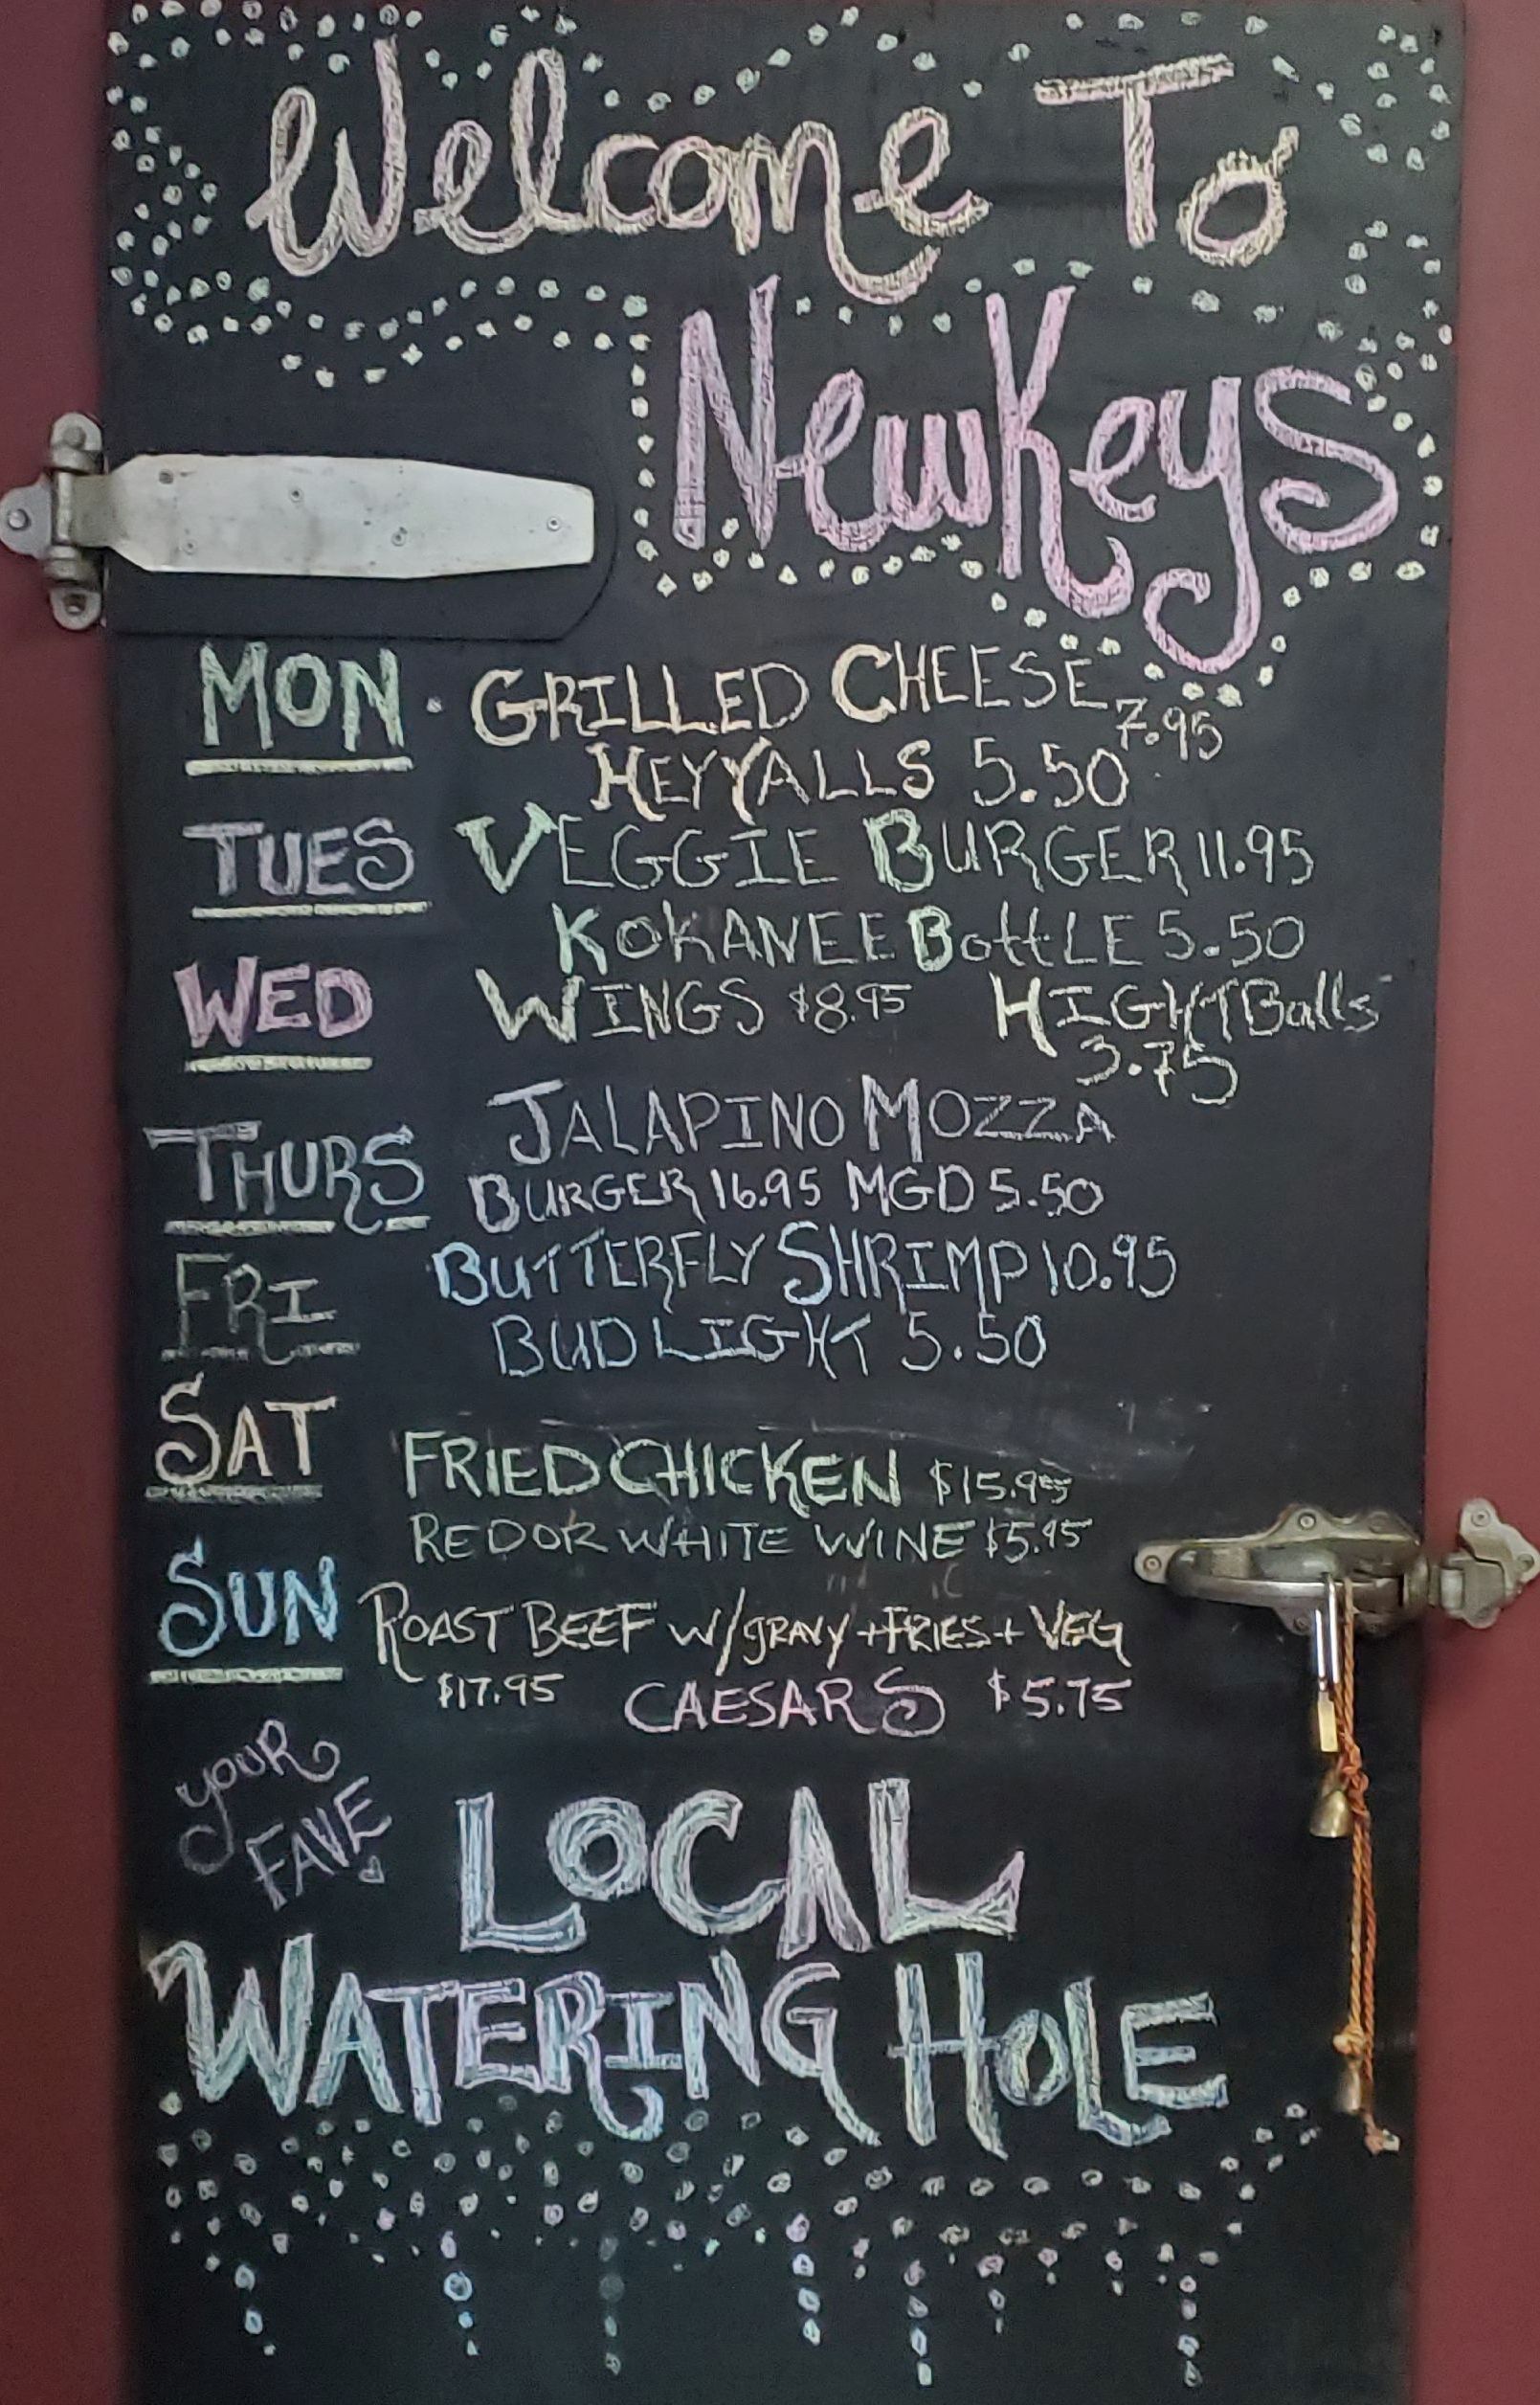 Welcome To
NewKeys
MON · GRILLED CHEESE 7.95
HEYYALLS 5.50
TUES VEGGIE BURGER 11.95
KOKANEE BottLE 5.50
WED WINGS $8.95 HIGHTBalls
3.75
THURS JALAPINO MOZZA
BURGER 16.95 MGD 5.50
FRI BUTTERFLY SHRIMP 10.95
BUD LIGHT 5.50
SAT FRIED CHICKEN $15.95
RED OR WHITE WINE $5.95
SUN ROAST BEEF W/GRAVY + FRIES + VEG
$17.95 CAESARS $5.75
YOUR
FAVE
LOCAL
WATERING HOLE